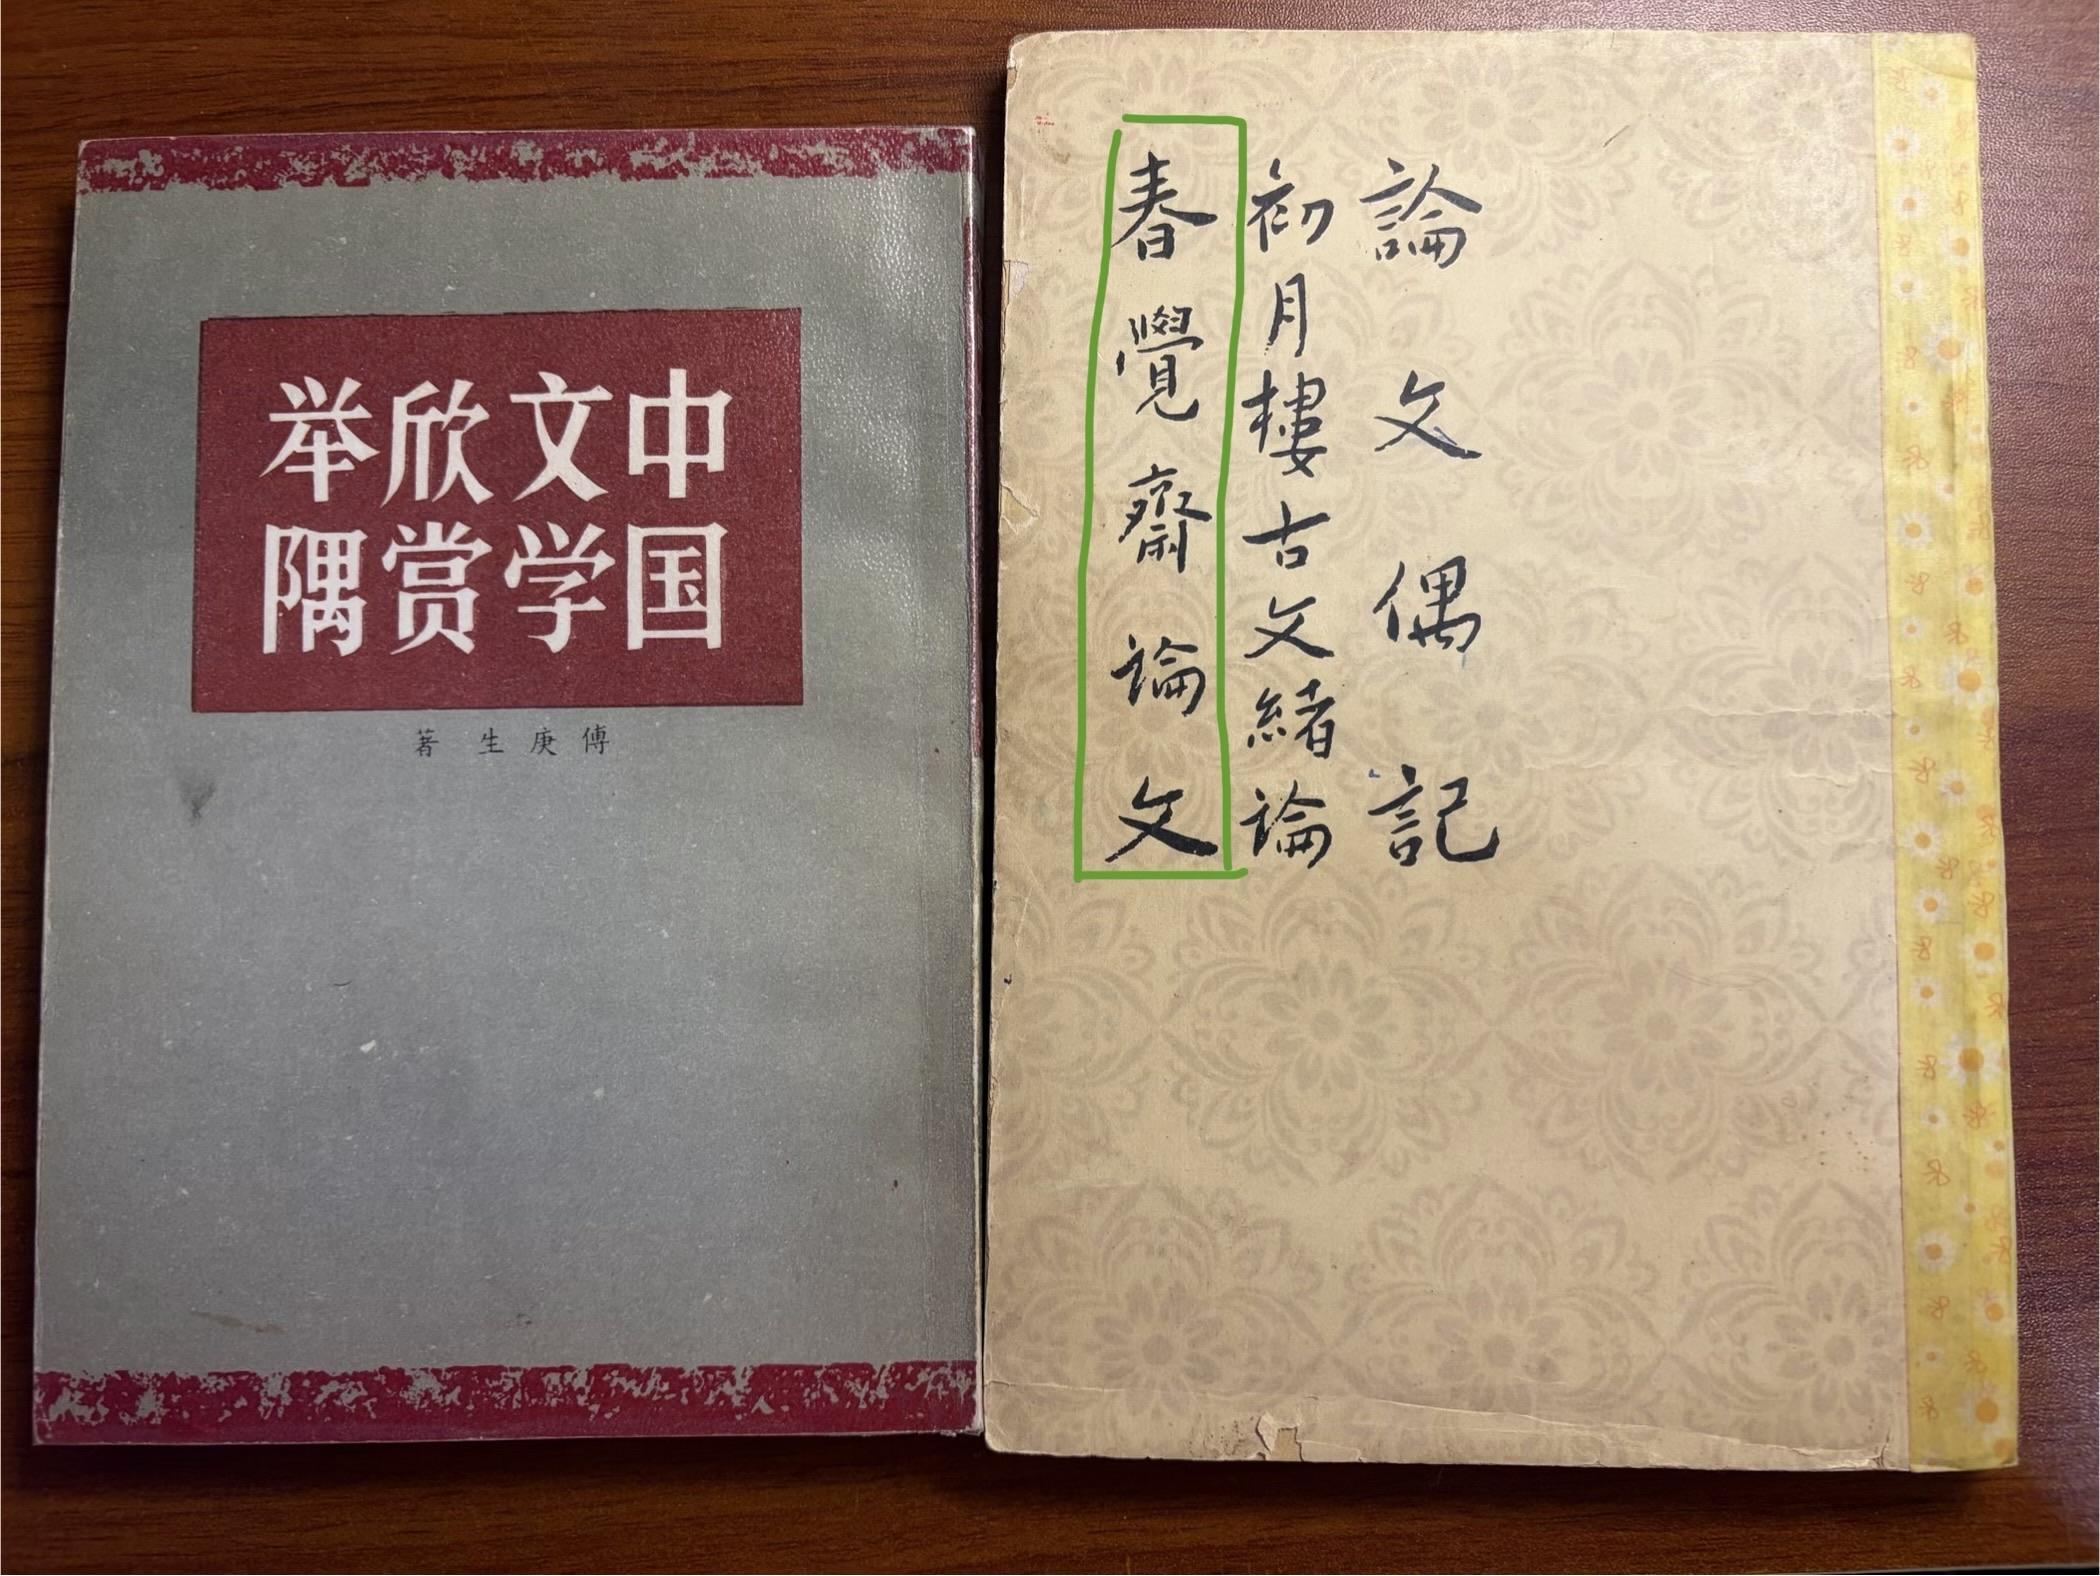 中国文学欣赏举隅
傅庚生 著
論文偶記
初月樓古文緒論
春覺齋論文